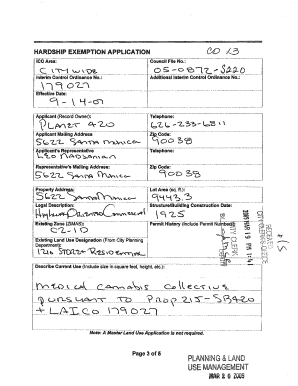 CD 13
HARDSHIP EXEMPTION APPLICATION
ICO Area: Council File No.:
CITYWIDE 05-0872-S220
Interim Control Ordinance No.: Additional Interim Control Ordinance No.:
179027
Effective Date:
9-14-07
Applicant (Record Owner): Telephone:
PLANET 420 626-233-6811
Applicant Mailing Address Zip Code:
5622 SANTA MONICA 90038
Applicant's Representative Telephone:
Representative's Mailing Address Zip Code:
5622 SANTA MONICA 90038
Property Address: Lot Area (sq. ft.):
5622 SANTA MONICA 9443.3
Legal Description: Structure/Building Construction Date:
Highway Oriented Commercial 1925
Existing Zone (ZIMAS): Permit History (Include Permit Number):
C2-1D
Existing Land Use Designation (From City Planning
Department):
Describe Current Use (Include size in square feet, height, etc.):
MEDICAL CANNABIS COLLECTIVE
PURSUANT TO PROP 215-SB420
+ LA ICO 179027
Note: A Master Land Use Application is not required.
Page 3 of 5
PLANNING & LAND
USE MANAGEMENT
MAR 2 6 2009
RECEIVED
CITY CLERK'S OFFICE
2009 MAR 19 PM 1:41
CITY CLERK